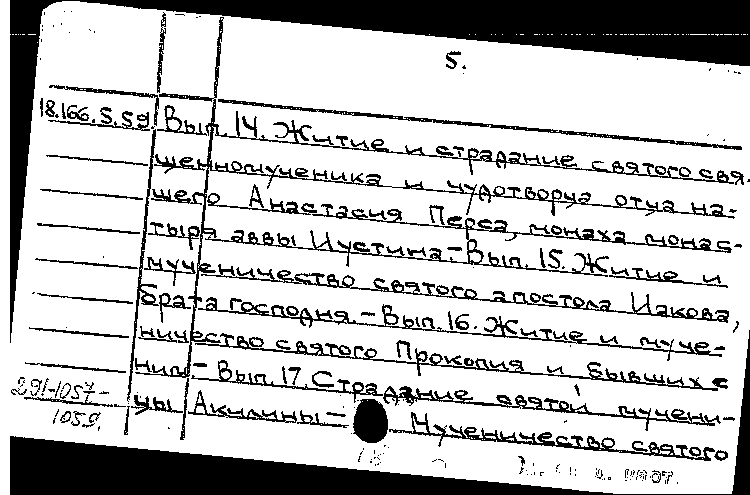 5.
18.166.5.59. Вып. 14. Житие и страдание святого свя-
щенномученика и чудотворца отца на-
шего Анастасия Перса, монаха монас-
тыря аввы Иустина.-Вып. 15. Житие и
мученичество святого апостола Иакова,
брата господня.-Вып. 16. Житие и муче-
ничество святого Прокопия и бывших с
ним.-Вып. 17. Страдание святой мучени-
цы Акилины.- Мученичество святого
291-1057-
1059.